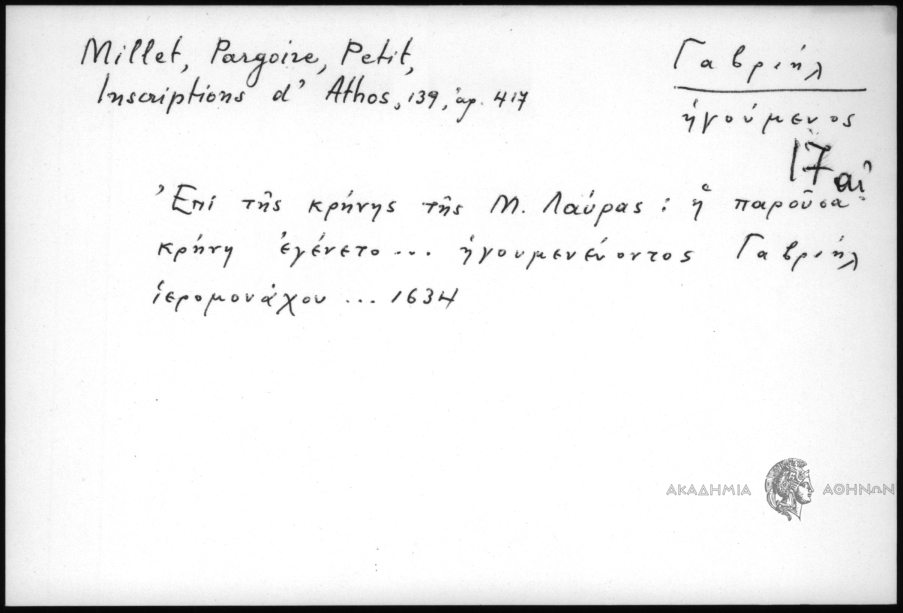 Millet, Pargoire, Petit,
Inscriptions d' Athos, 139, ἀρ. 417
Γαβριήλ
ἡγούμενος
17 αἰ
Ἐπὶ τῆς κρήνης τῆς Μ. Λαύρας : ἡ παροῦσα
κρήνη ἐγένετο ... ἡγουμενεύοντος Γαβριήλ
ἱερομονάχου ... 1634
ΑΚΑΔΗΜΙΑ ΑΘΗΝΩΝ